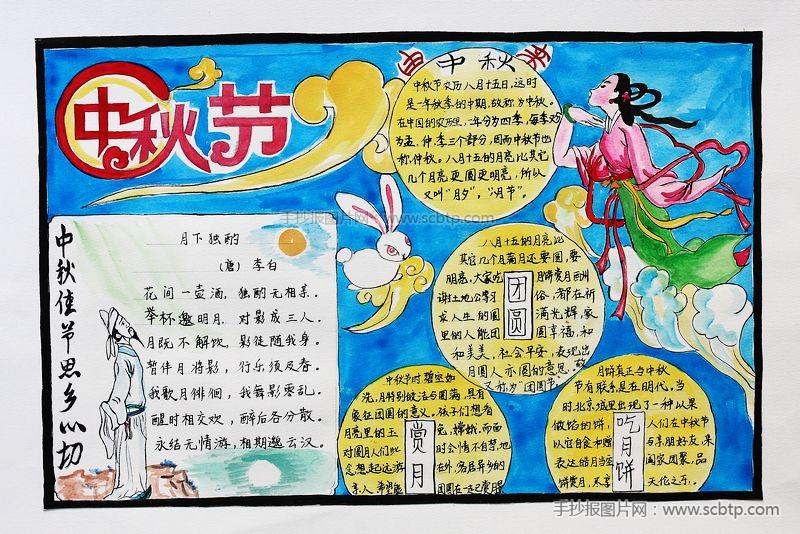 中秋节
中秋佳节思乡心切
月下独酌
(唐) 李白
花间一壶酒,独酌无相亲。
举杯邀明月,对影成三人。
月既不解饮,影徒随我身。
暂伴月将影,行乐须及春。
我歌月徘徊,我舞影零乱。
醒时相交欢,醉后各分散。
永结无情游,相期邈云汉。
中秋
中秋节农历八月十五日,这时
是一年秋季的中期,故称为中秋。
在中国的农历里,一年分为四季,每季分
为孟、仲、季三个部分,因而中秋节也
称仲秋。八月十五的月亮比其它
几个月亮更圆更明亮,所以
又叫"月夕","八月节"。
团圆
八月十五的月亮比
其它几个满月还要圆,要
明亮,大家吃月饼赏月酬
谢土地公等习俗,都在祈
求人生的圆满光辉,家
里的人能团圆幸福,和
和美美,社会平安,表现出
月圆人亦圆的意思,故
又称为"团圆节"。
赏月
中秋节时碧空如
洗,月特别皎洁与圆满,具有
象征团圆的意义。孩子们想着
月亮里的玉兔、嫦娥,而面
对圆月人们此时会情不自禁地
念想起远游在外、客居异乡的
亲人
吃月饼
月饼真正与中秋
节有联系是在明代。当
时北京城里出现了一种以果
做馅的饼,人们在中秋节
以它自食和赠与亲朋好友,来
表达皓月当空阖家团聚,品
饼赏月,尽享天伦之乐。
手抄报图片网:www.scbtp.com
手抄报图片网:www.scbtp.com